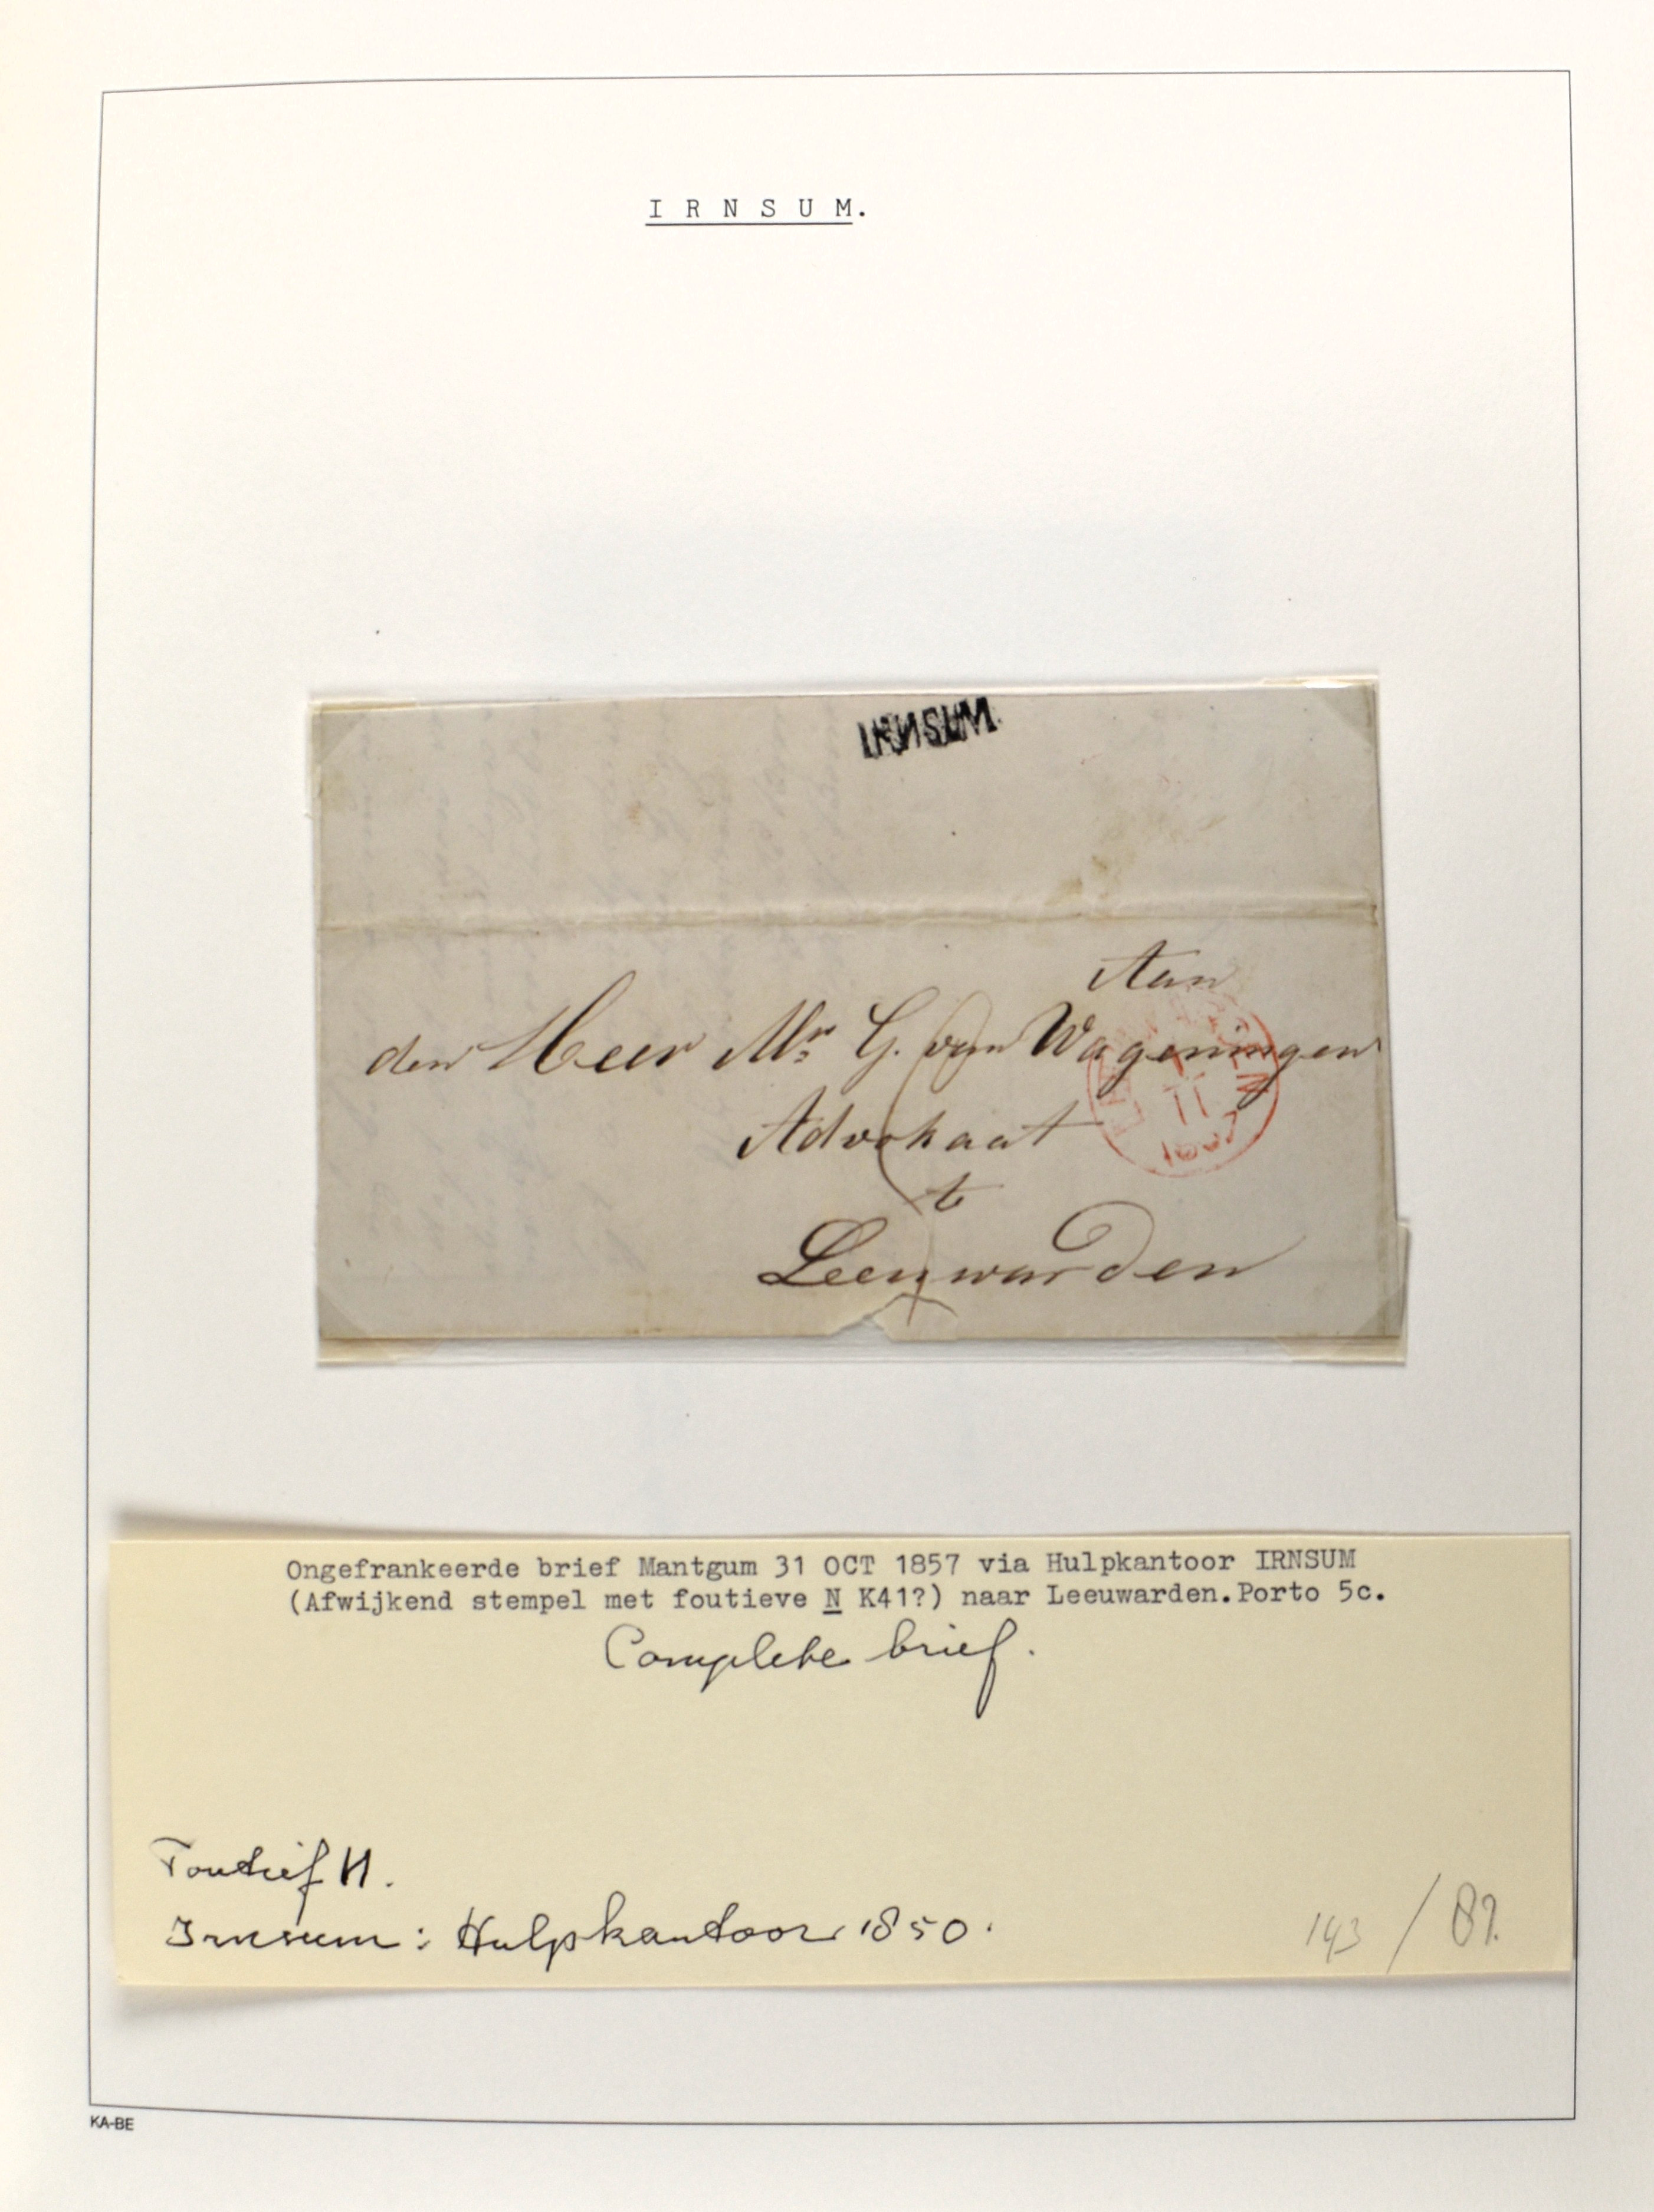 I R N S U M.
IRNSUM.
Aan
den Heer Mr. G. van Wageningen
11
1857
Advokaat
te
Leeuwarden
Ongefrankeerde brief Mantgum 31 OCT 1857 via Hulpkantoor IRNSUM
(Afwijkend stempel met foutieve N K41?) naar Leeuwarden.Porto 5c.
Complete brief.
Foutief И.
Irnsum: Hulpkantoor 1850.
143 / 87.
KA-BE